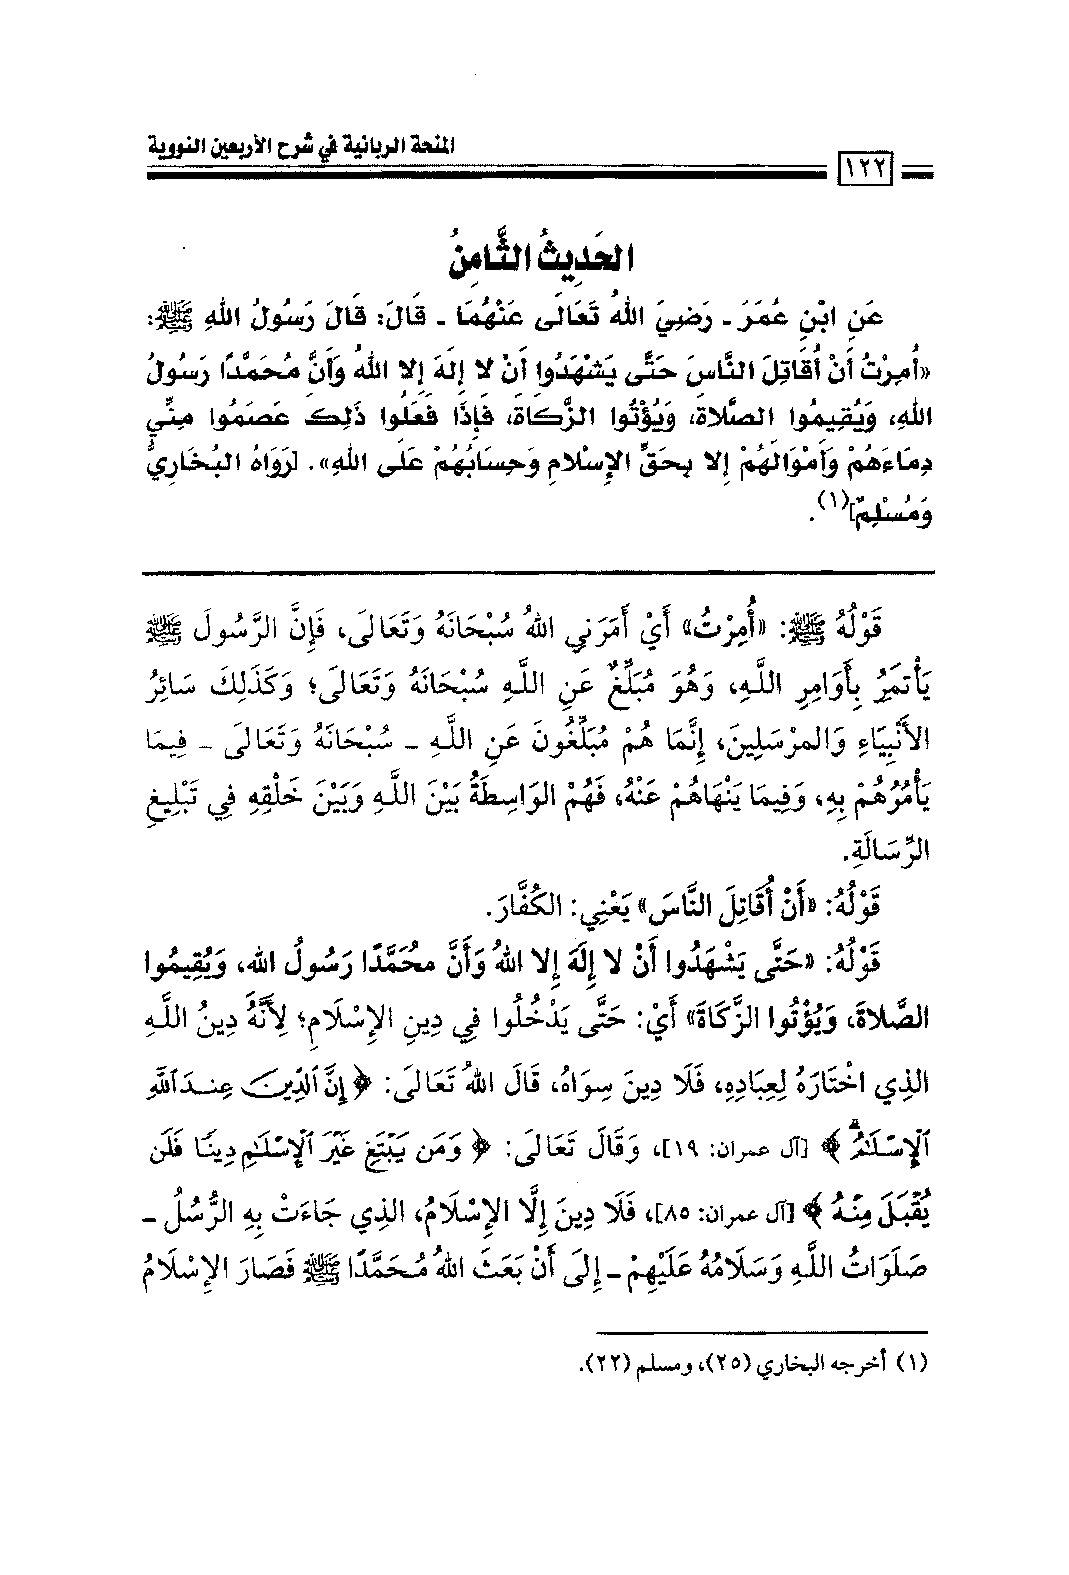 المنحة الربانية في شرح الأربعين النووية
١٢٢
الحَدِيثُ الثَّامِنُ
عَنِ ابْنِ عُمَرَ ـ رَضِيَ اللهُ تَعَالَى عَنْهُمَا ـ قَالَ: قَالَ رَسُولُ اللهِ ﷺ:
«أُمِرْتُ أَنْ أُقَاتِلَ النَّاسَ حَتَّى يَشْهَدُوا أَنْ لا إِلَهَ إِلا اللهُ وَأَنَّ مُحَمَّدًا رَسُولُ
اللهِ، وَيُقِيمُوا الصَّلاةَ، وَيُؤْتُوا الزَّكَاةَ، فَإِذَا فَعَلُوا ذَلِكَ عَصَمُوا مِنِّي
دِمَاءَهُمْ وَأَمْوَالَهُمْ إِلا بِحَقِّ الإِسْلامِ وَحِسَابُهُمْ عَلَى اللهِ». [رَوَاهُ البُخَارِيُّ
وَمُسْلِمٌ](١).
قَوْلُهُ ﷺ: «أُمِرْتُ» أَيْ أَمَرَنِي اللهُ سُبْحَانَهُ وَتَعَالَى، فَإِنَّ الرَّسُولَ ﷺ
يَأْتَمِرُ بِأَوَامِرِ اللَّهِ، وَهُوَ مُبَلِّغٌ عَنِ اللَّهِ سُبْحَانَهُ وَتَعَالَى؛ وَكَذَلِكَ سَائِرُ
الأَنْبِيَاءِ وَالمرْسَلِينَ، إِنَّمَا هُمْ مُبَلِّغُونَ عَنِ اللَّهِ ـ سُبْحَانَهُ وَتَعَالَى ـ فِيمَا
يَأْمُرُهُمْ بِهِ، وَفِيمَا يَنْهَاهُمْ عَنْهُ، فَهُمْ الوَاسِطَةُ بَيْنَ اللَّهِ وَبَيْنَ خَلْقِهِ فِي تَبْلِيغِ
الرِّسَالَةِ.
قَوْلُهُ: «أَنْ أُقَاتِلَ النَّاسَ» يَعْنِي: الكُفَّارَ.
قَوْلُهُ: «حَتَّى يَشْهَدُوا أَنْ لا إِلَهَ إِلا اللهُ وَأَنَّ محَمَّدًا رَسُولُ الله، وَيُقِيمُوا
الصَّلاةَ، وَيُؤْتُوا الزَّكَاةَ» أَيْ: حَتَّى يَدْخُلُوا فِي دِينِ الإِسْلَامِ؛ لِأَنَّهُ دِينُ اللَّهِ
الذِي اخْتَارَهُ لِعِبَادِهِ، فَلَا دِينَ سِوَاهُ، قَالَ اللهُ تَعَالَى: ﴿إِنَّ ٱلدِّينَ عِندَ ٱللَّهِ
ٱلْإِسْلَٰمُ﴾ [آل عمران: ١٩]، وَقَالَ تَعَالَى: ﴿وَمَن يَبْتَغِ غَيْرَ ٱلْإِسْلَٰمِ دِينًا فَلَن
يُقْبَلَ مِنْهُ﴾ [آل عمران: ٨٥]، فَلَا دِينَ إِلَّا الإِسْلَامُ، الذِي جَاءَتْ بِهِ الرُّسُلُ ـ
صَلَوَاتُ اللَّهِ وَسَلَامُهُ عَلَيْهِمْ ـ إِلَى أَنْ بَعَثَ اللهُ مُحَمَّدًا ﷺ فَصَارَ الإِسْلَامُ
(١) أخرجه البخاري (٢٥)، ومسلم (٢٢).